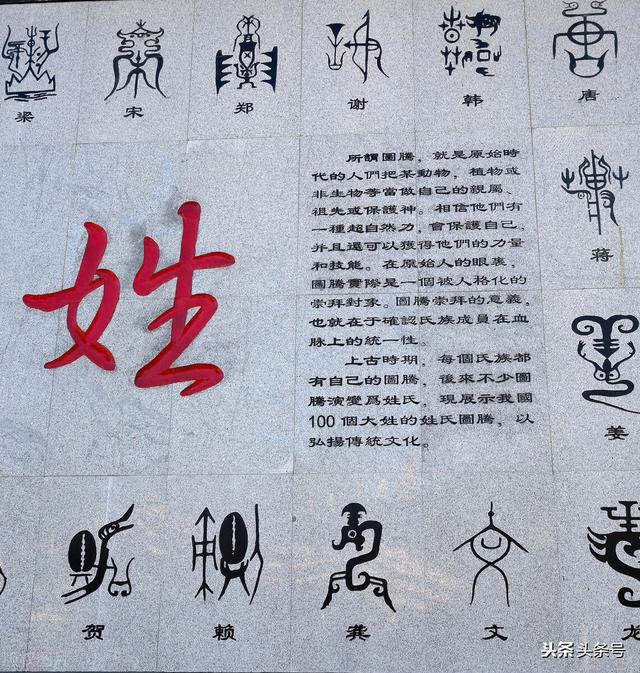 梁 宋 郑 谢 韩 唐
姓
所謂圖騰，就是原始時
代的人們把某動物，植物或
非生物等當做自己的親屬、
祖先或保護神。相信他們有
一種超自然力，會保護自己，
并且還可以獲得他們的力量
和技能。在原始人的眼裏，
圖騰實際是一個被人格化的
崇拜對象。圖騰崇拜的意義，
也就在于確認氏族成員在血
脉上的統一性。
上古時期，每個氏族都
有自己的圖騰，後來不少圖
騰演變爲姓氏，現展示我國
100個大姓的姓氏圖騰，以
弘揚傳統文化。
蒋
姜
贺 赖 龚 文 龙
头条 头条号